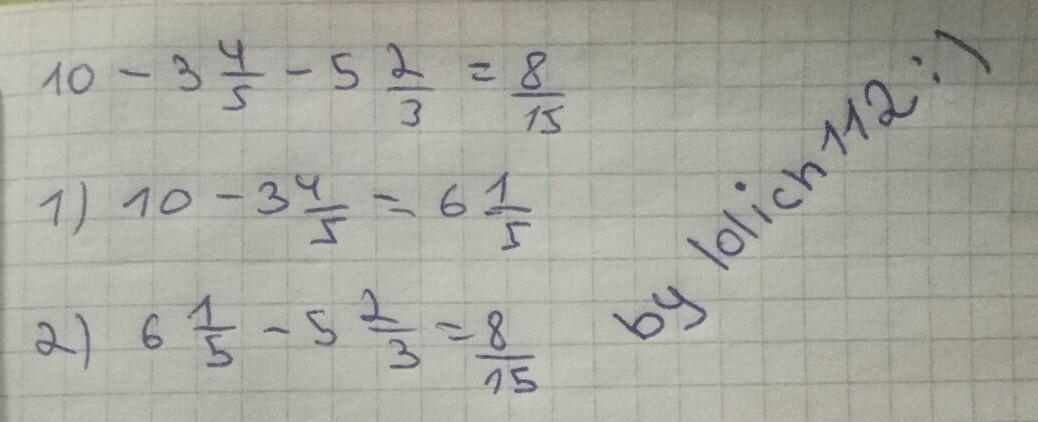 10 - 3 4/5 - 5 2/3 = 8/15
1) 10 - 3 4/5 = 6 1/5
2) 6 1/5 - 5 2/3 = 8/15
by lolich112 :)